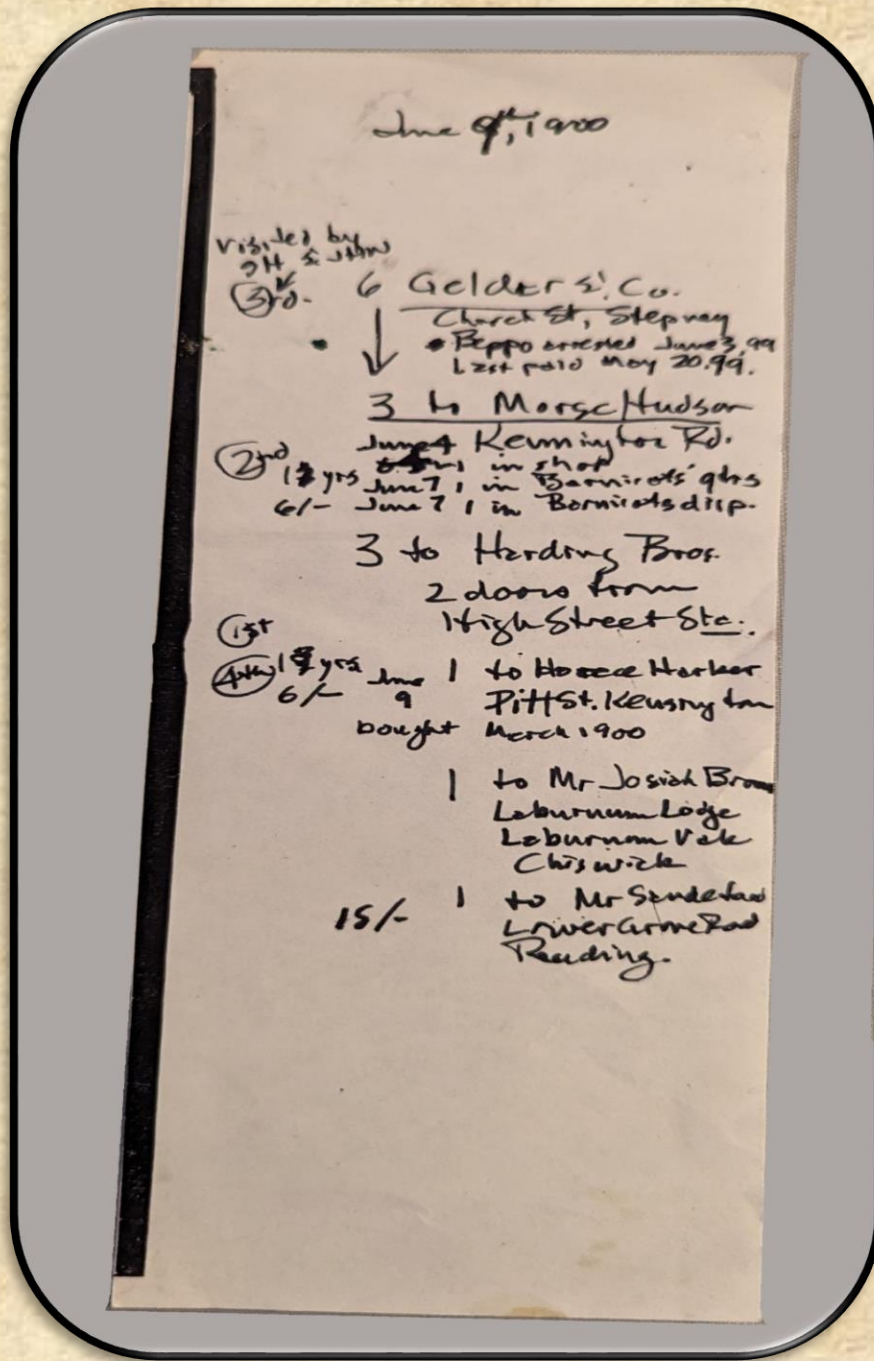 June 9th, 1900
visited by
SH & JHW
3rd. 6 Gelder & Co.
Church St, Stepney
• Beppo arrested June 3, 99
Last paid May 20.99.
3 to Morse Hudson
June 4 Kennington Rd.
2nd 1 in shop
yrs June 7 1 in Barnicots' qtrs
6/- June 7 1 in Barnicots disp.
3 to Harding Bros.
2 doors from
High Street Sta.
1st
4th yrs June 1 to Horace Harker
6/- 9 Pitt St. Kensington
bought March 1900
1 to Mr Josiah Brown
Laburnum Lodge
Laburnum Vale
Chiswick
1 to Mr Sandeford
15/- Lower Grove Road
Reading.